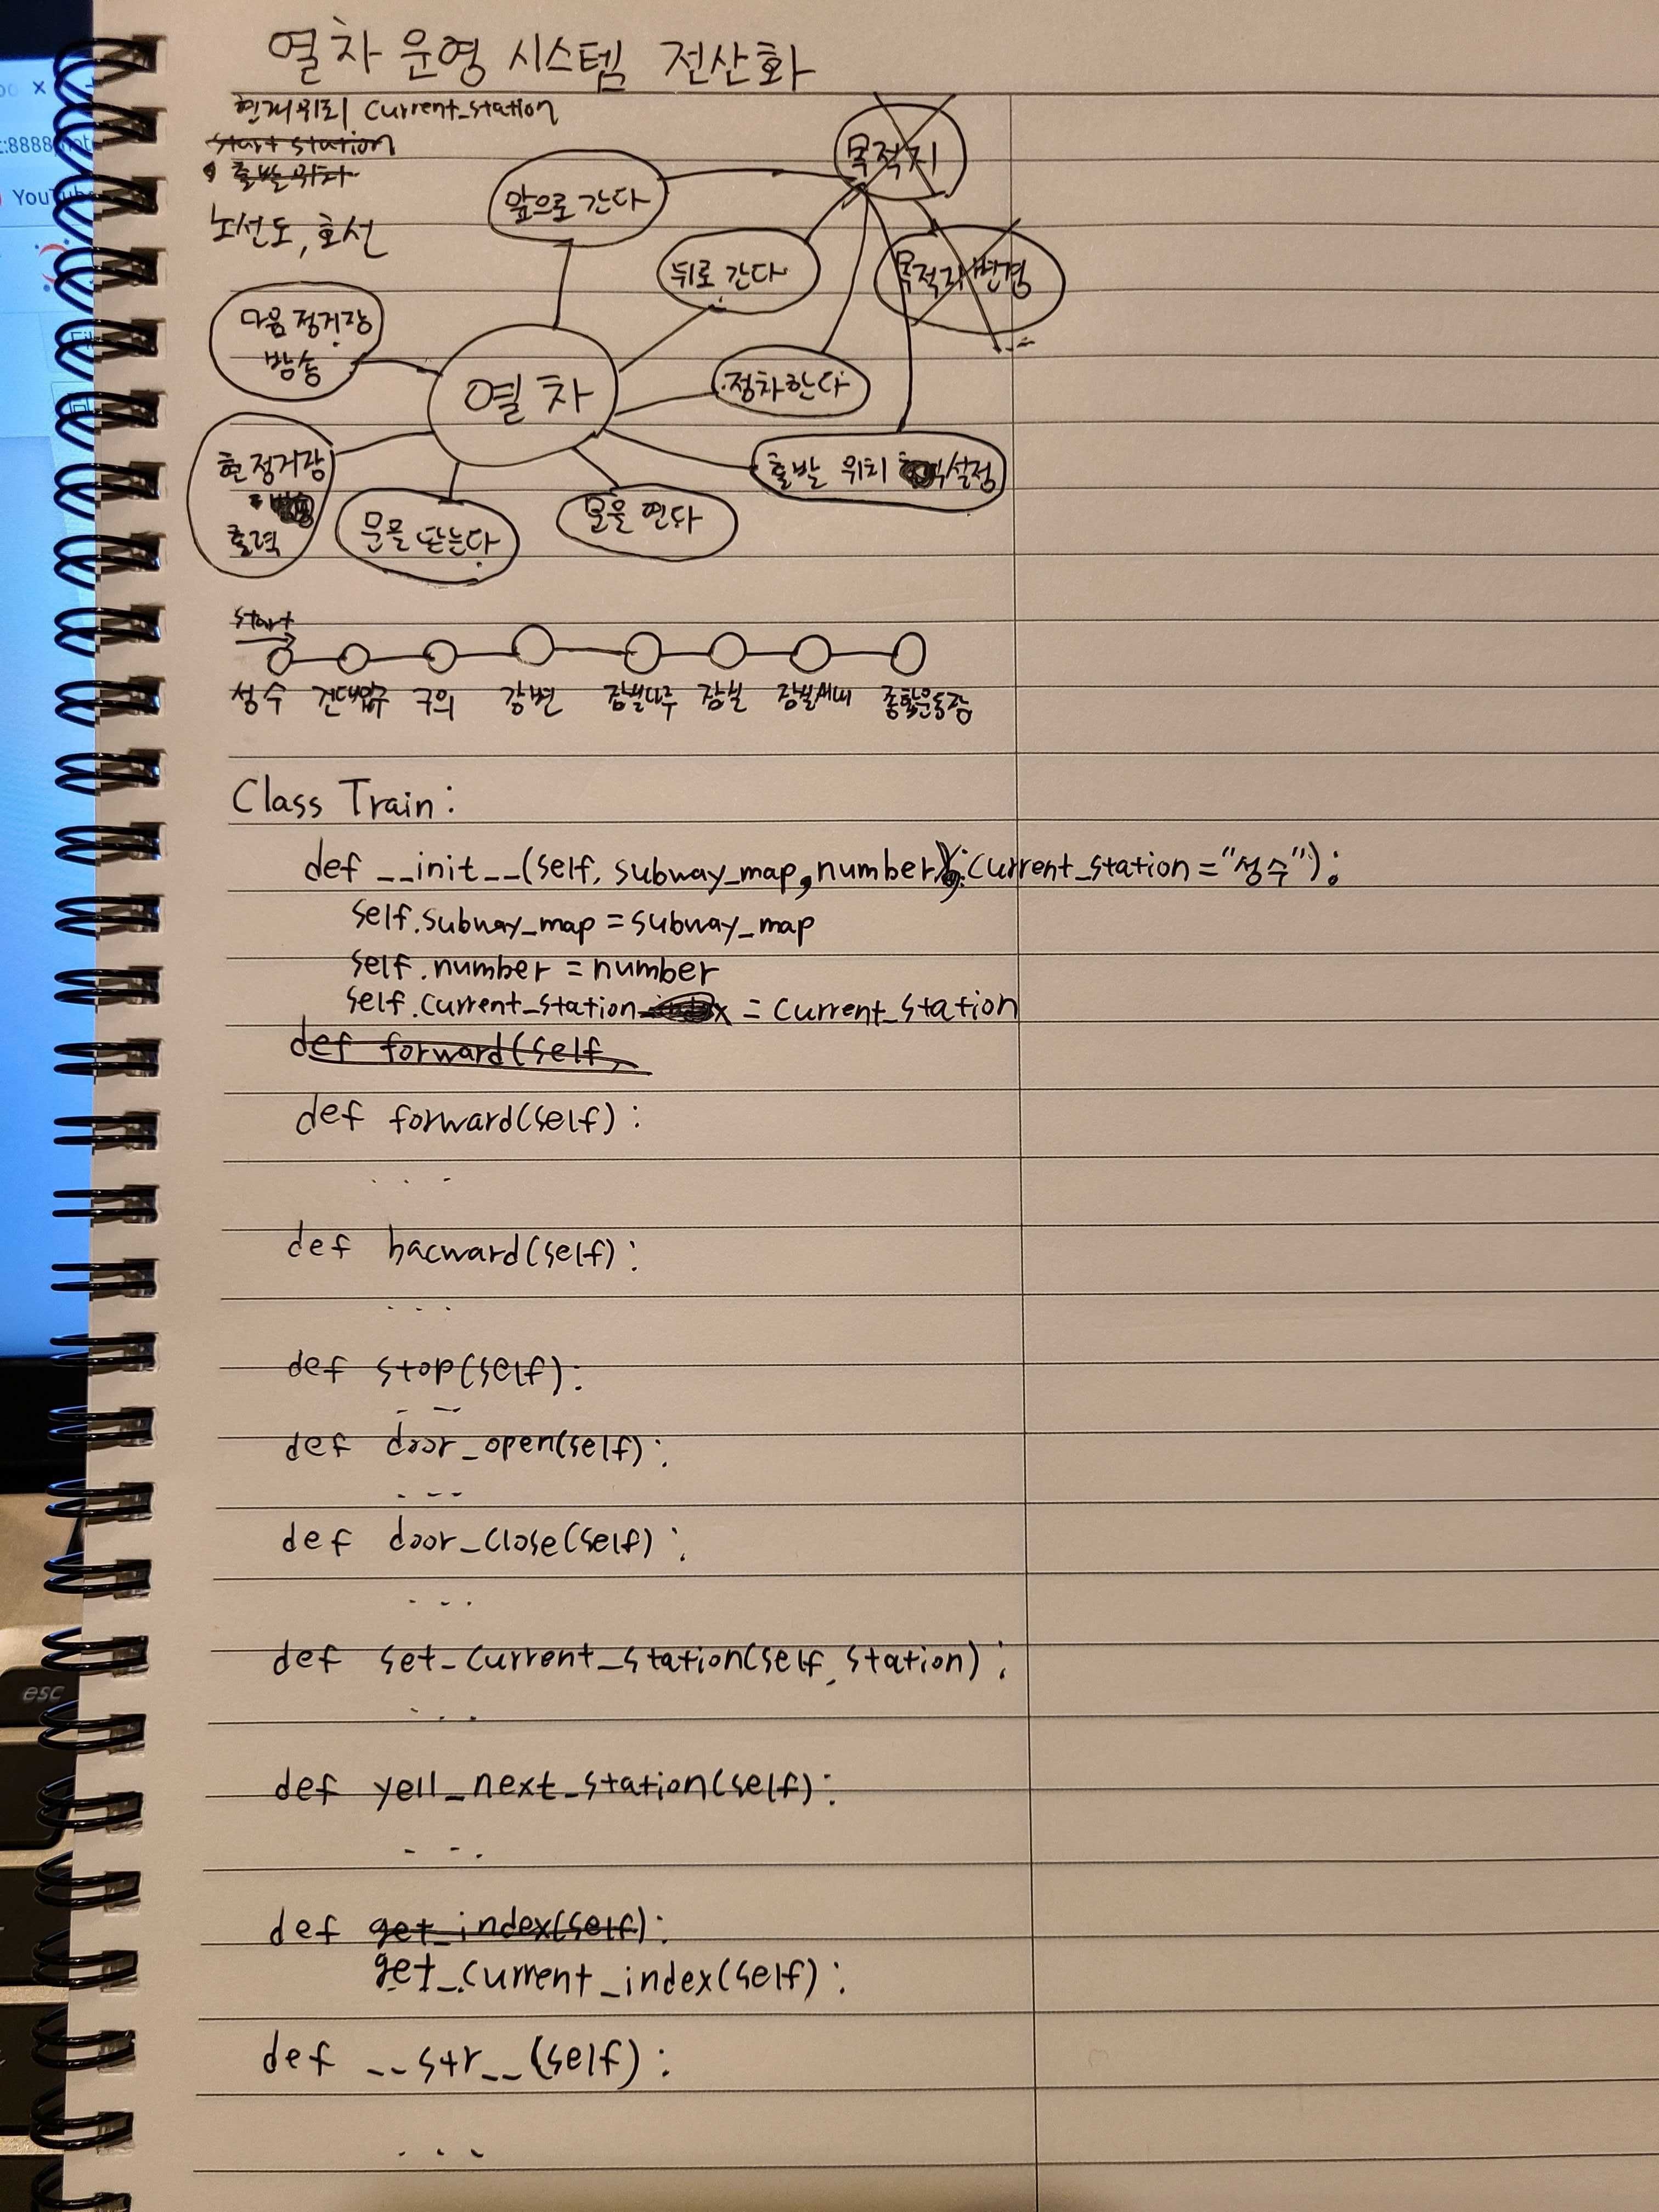 열차 운영 시스템 전산화
현재위치 current_station
start station
출발 위치
노선도, 호선
목적지
앞으로 간다
뒤로 간다
목적지 변경
다음 정거장
방송
열차
정차한다
현 정거장
출력
출발 위치 설정
문을 닫는다
문을 연다
start
성수 건대입구 구의 강변 잠실나루 잠실 잠실새내 종합운동장
Class Train:
def __init__(self, subway_map, number, current_station="성수"):
self.subway_map = subway_map
self.number = number
self.current_station = current_station
def forward(self,
def forward(self):
...
def bacward(self):
...
def stop(self):
...
def door_open(self):
...
def door_close(self):
...
def set_current_station(self, station):
...
def yell_next_station(self):
...
def get_index(self):
get_current_index(self):
def __str__(self):
...
:8888
YouTube
esc